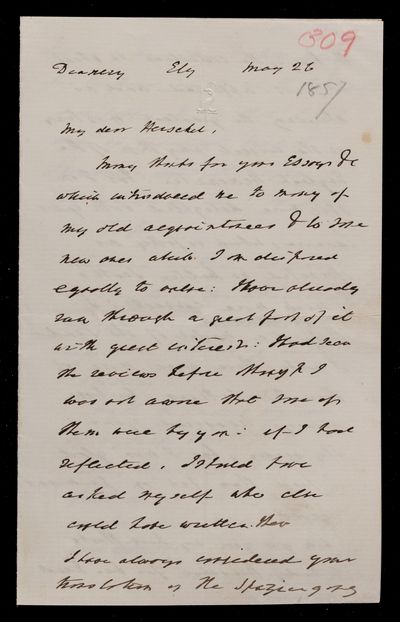 309
Deanery Ely May 26
1857
My dear Herschel,
Many thanks for your Essays &c
which introduced me to many of
my old acquaintances & to some
new ones which I am disposed
equally to value: I have already
run through a great part of it
with great interest: I had seen
the reviews before though I
was not aware that some of
them were by you: if I had
reflected, I should have
asked myself who else
could have written them
I have always considered your
translation of the Spaziergang